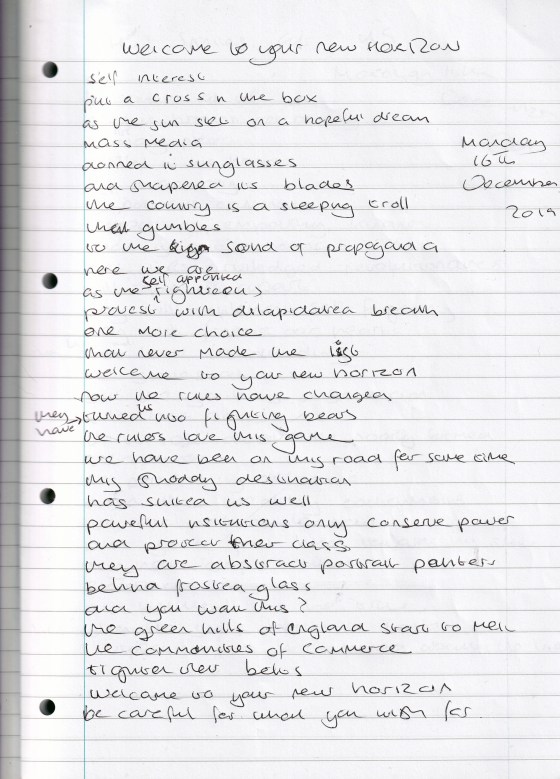 welcome to your new Horizon
self interest
put a cross in the box
as the sun set on a hopeful dream
mass media
donned it sunglasses
and sharpened its blades
the country is a sleeping troll
that grumbles
to the sound of propaganda
here we are
as the self appointed righteous
protest with dilapidated breath
one more choice
that never made the list
welcome to your new horizon
now the rules have changed
they have turned us into fighting bears
the rulers love this game
we have been on this road for some time
this shoddy destination
has suited us well
powerful institutions only conserve power
and protect their class
they are abstract portrait painters
behind frosted glass
and you want this?
the green hills of england start to melt
the communities of commerce
tighten their belts
welcome to your new horizon
be careful for what you wish for.
Monday
16th
December
2019